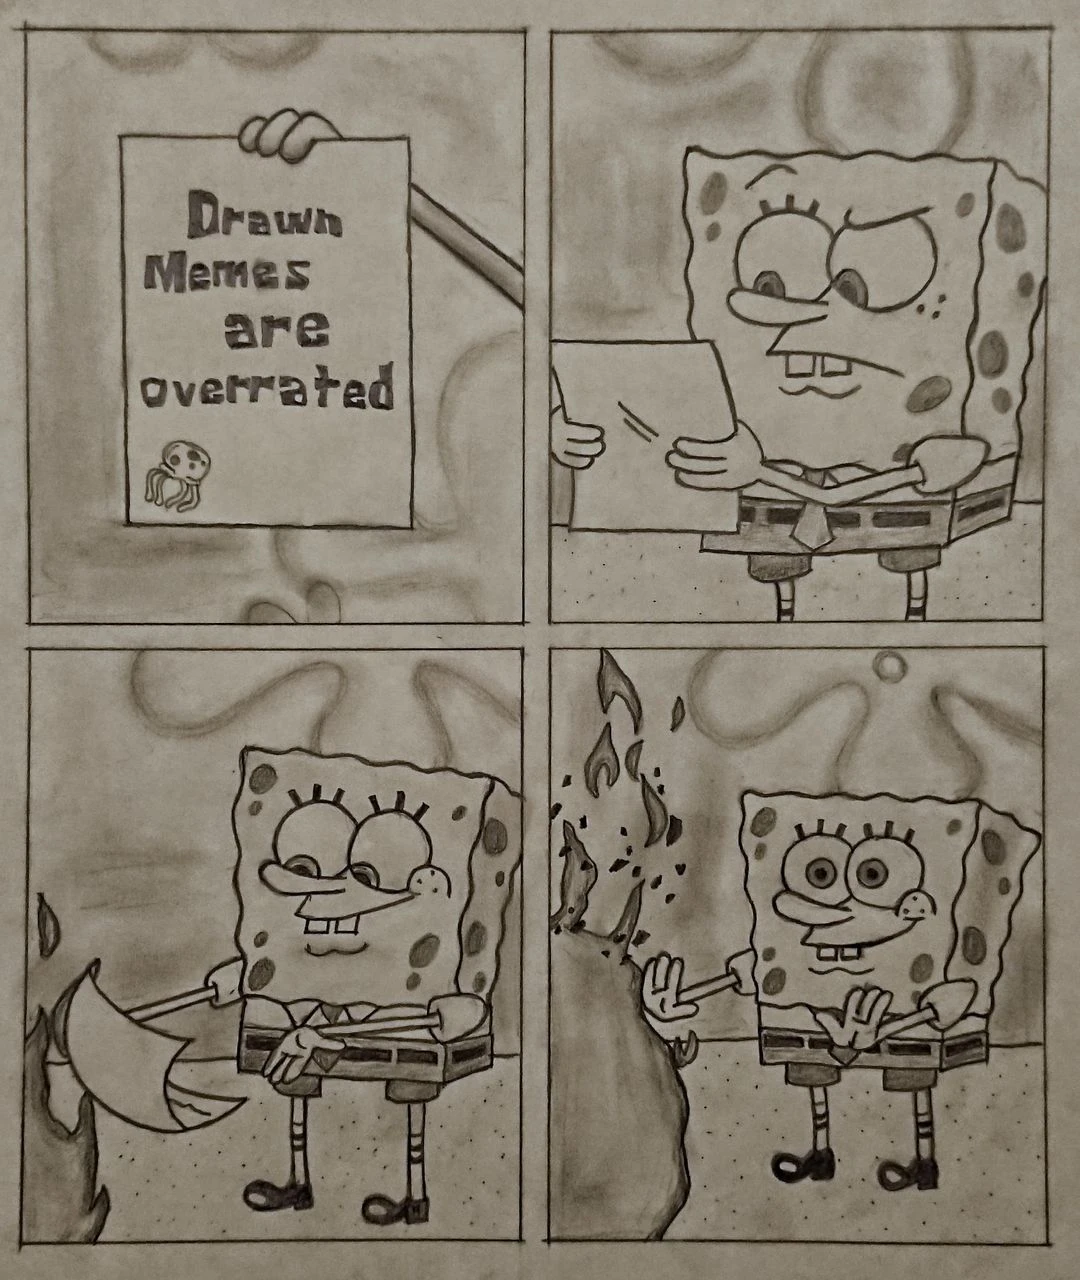 Drawn
Memes
are
overrated